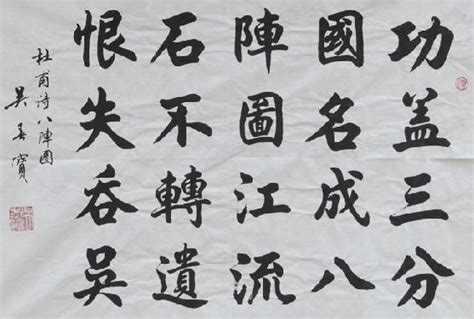 功盖三分
國名成八
陣圖江流
石不轉遺
恨失吞吳
杜甫诗八陣图
吴